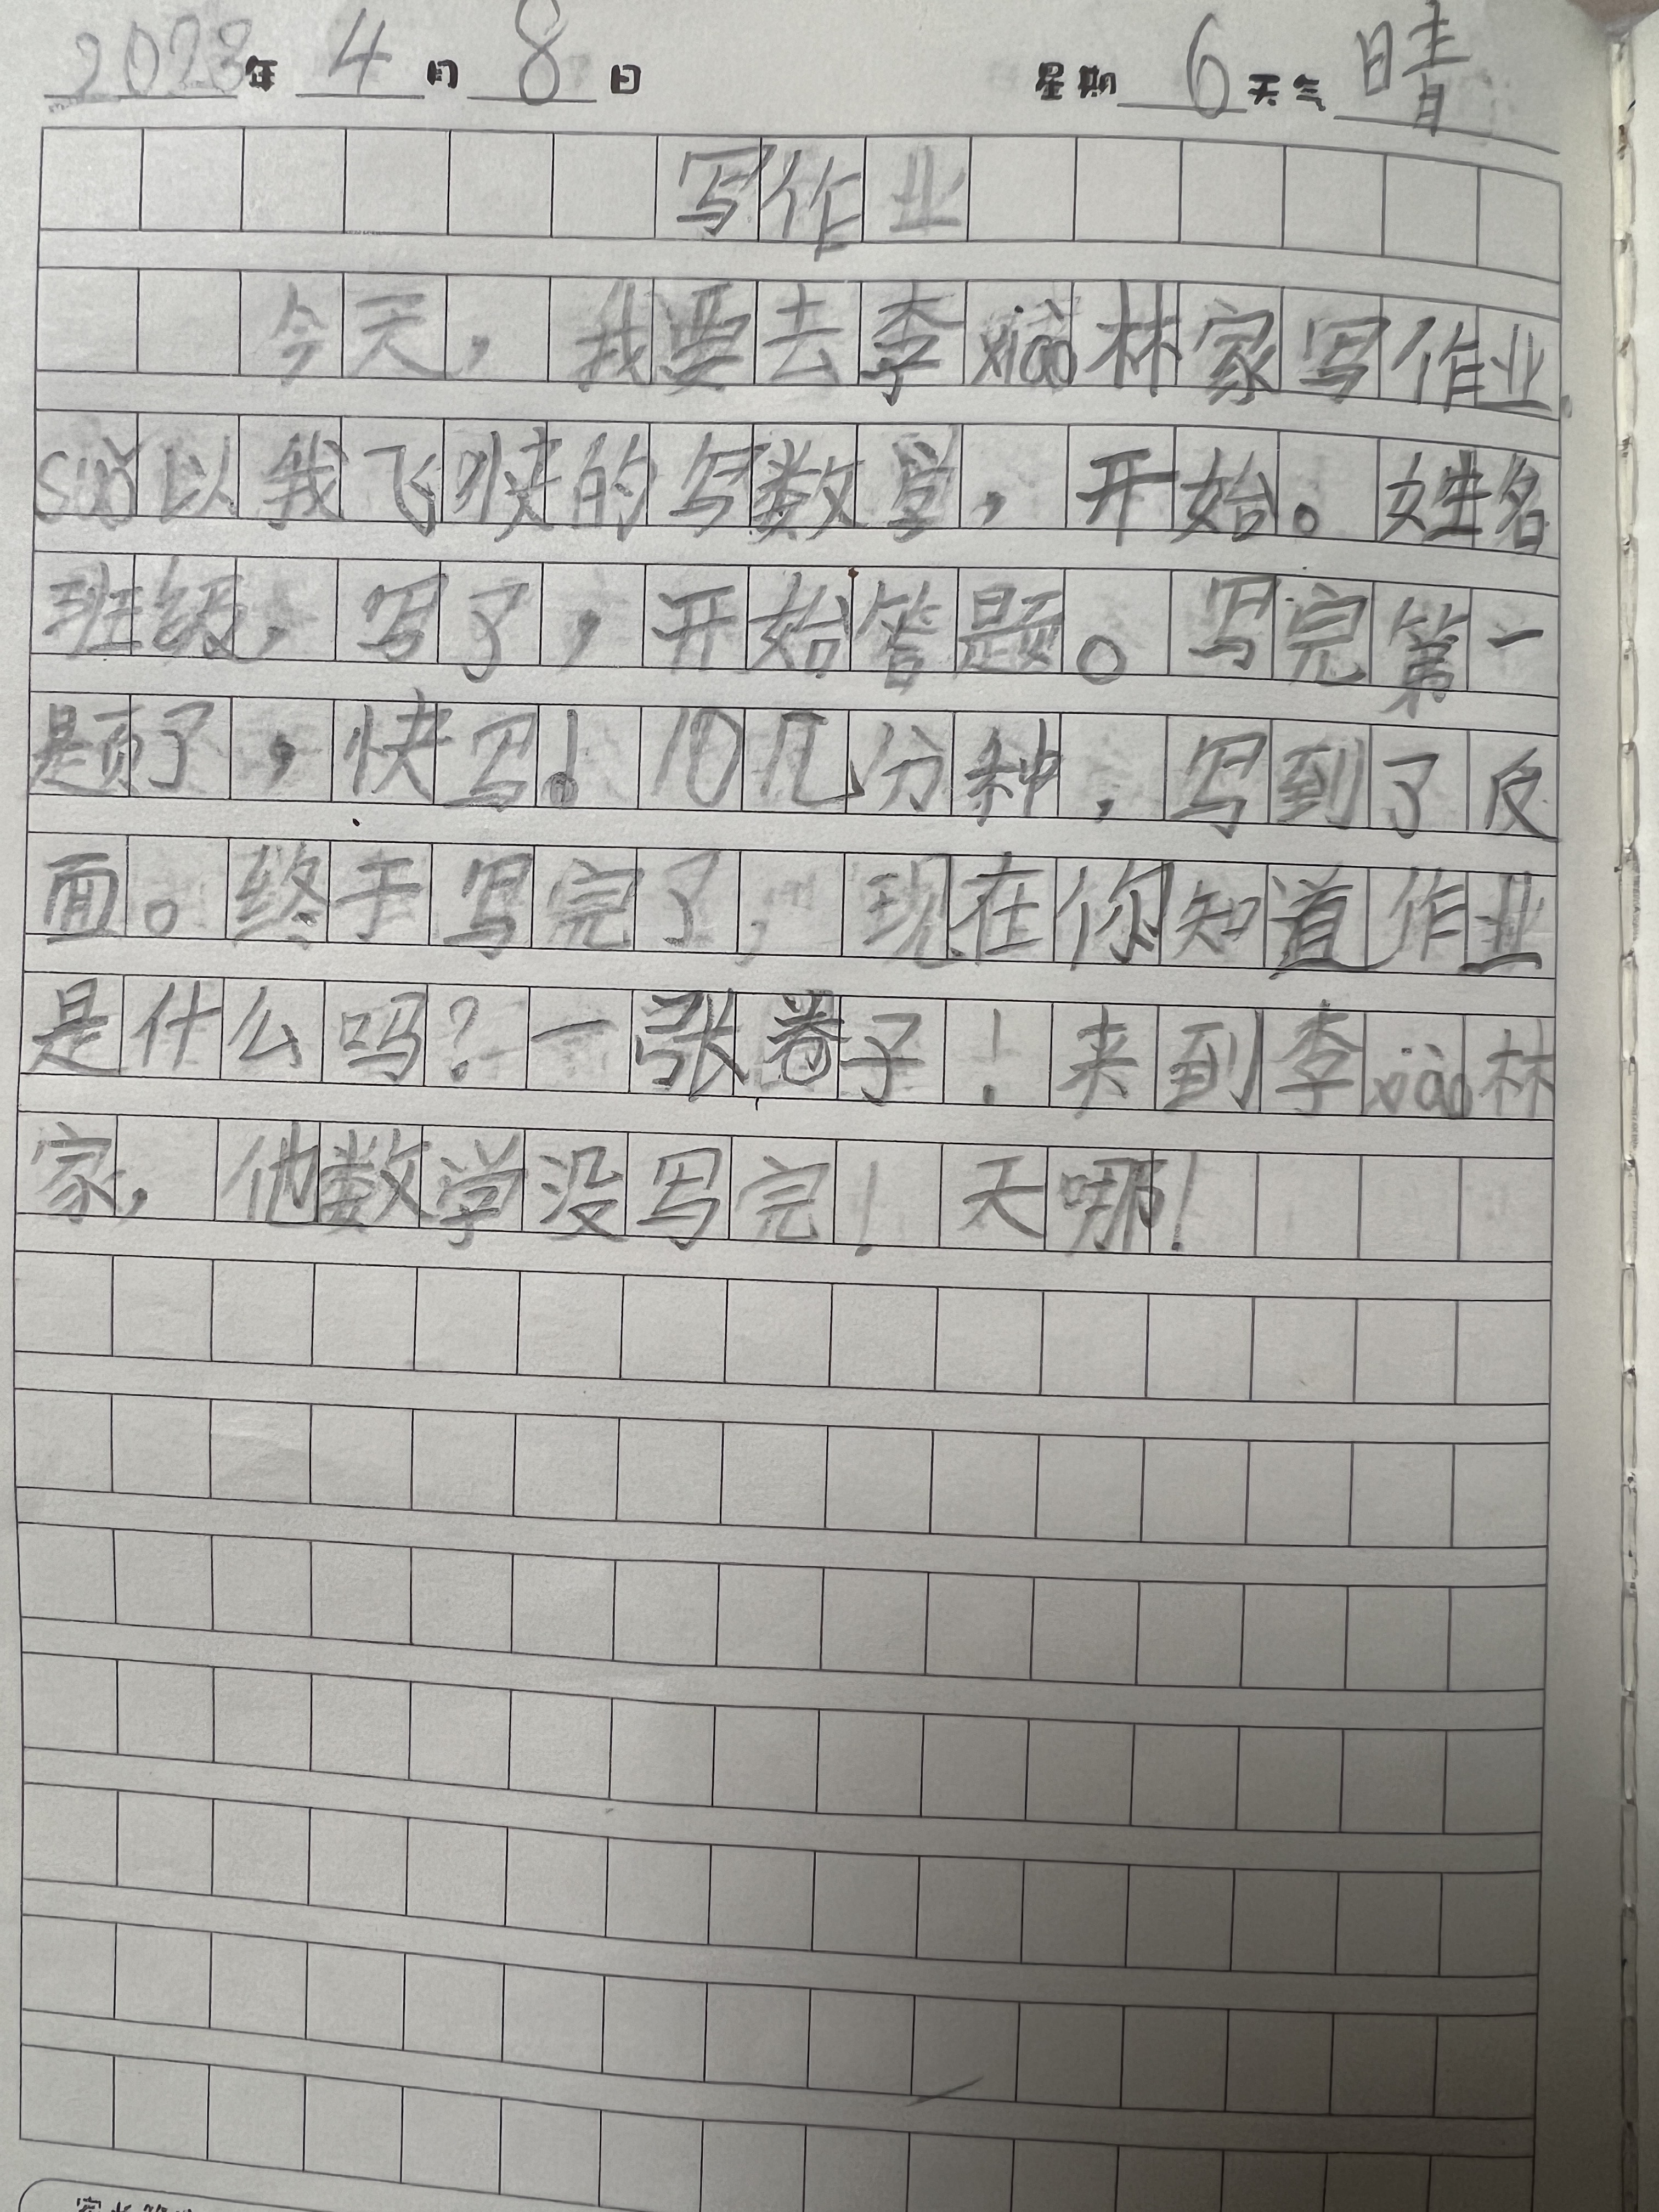 2023年4月8日 星期6天气晴
写作业
今天，我要去李xiǎo林家写作业，
suǒ以我飞快的写数学，开始。姓名
班级，写了，开始答题。写完第一
题了，快写！10几分种，写到了反
面。终于写完了，现在你知道作业
是什么吗？一张卷子！来到李xiǎo林
家，他数学没写完！天哪！